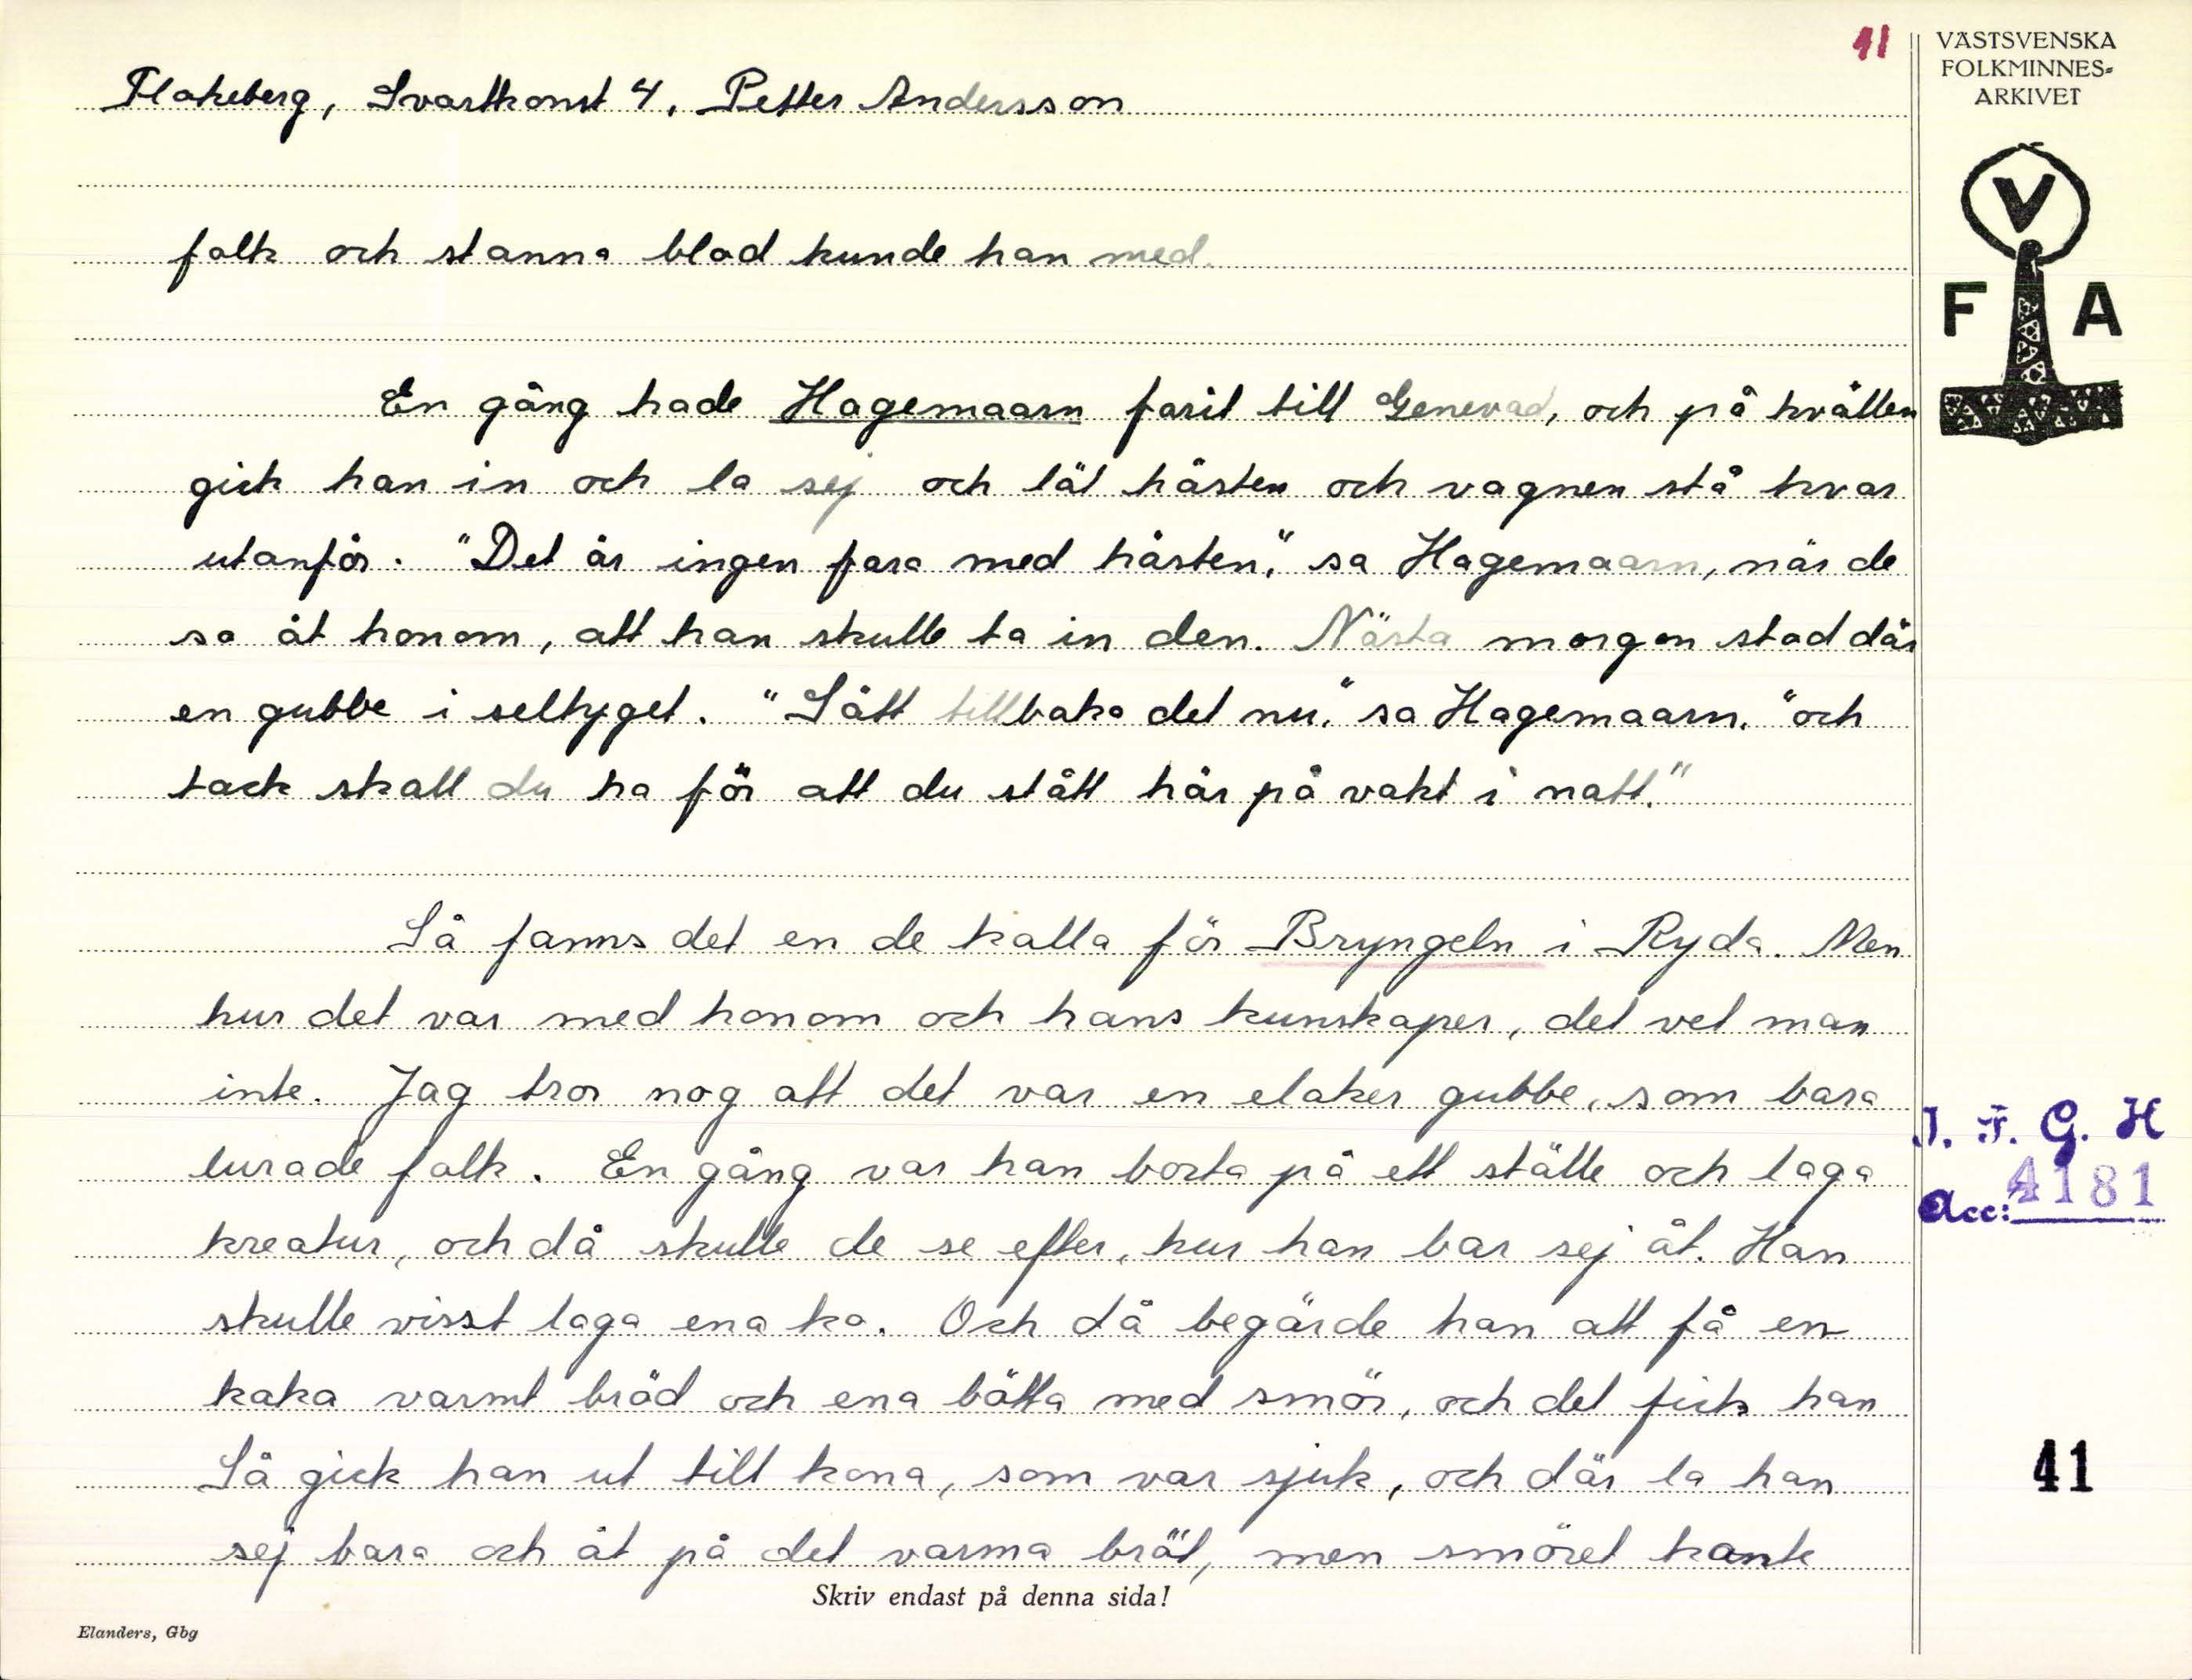 41
VÄSTSVENSKA
FOLKMINNES-
ARKIVET
V
F A
Flakeberg, Svartkonst 4. Petter Andersson
folk och stanna blod kunde han med.
En gång hade Hagemaarn farit till Genevad, och på kvällen
gick han in och la sej och lät hästen och vagnen stå kvar
utanför. "Det är ingen fara med hästen," sa Hagemaarn, när de
sa åt honom, att han skulle ta in den. Nästa morgon stod där
en gubbe i seltyget. "Sätt tillbaka det nu," sa Hagemaarn, "och
tack skall du ha för att du stått här på vakt i natt."
Så fanns det en de kalla för Bryngeln i Ryda. Men
hur det var med honom och hans kunskaper, det vet man
inte. Jag tror nog att det var en elaker gubbe, som bara
lurade folk. En gång var han borta på ett ställe och laga
kreatur, och då skulle de se efter, hur han bar sej åt. Han
skulle visst laga ena ko. Och då begärde han att få en
kaka varmt bröd och ena bötta med smör, och det fick han
Så gick han ut till kona, som var sjuk, och där la han
sej bara och åt på det varma bröt, men smöret kante
I. F. G. H
Acc: 4181
41
Skriv endast på denna sida!
Elanders, Gbg